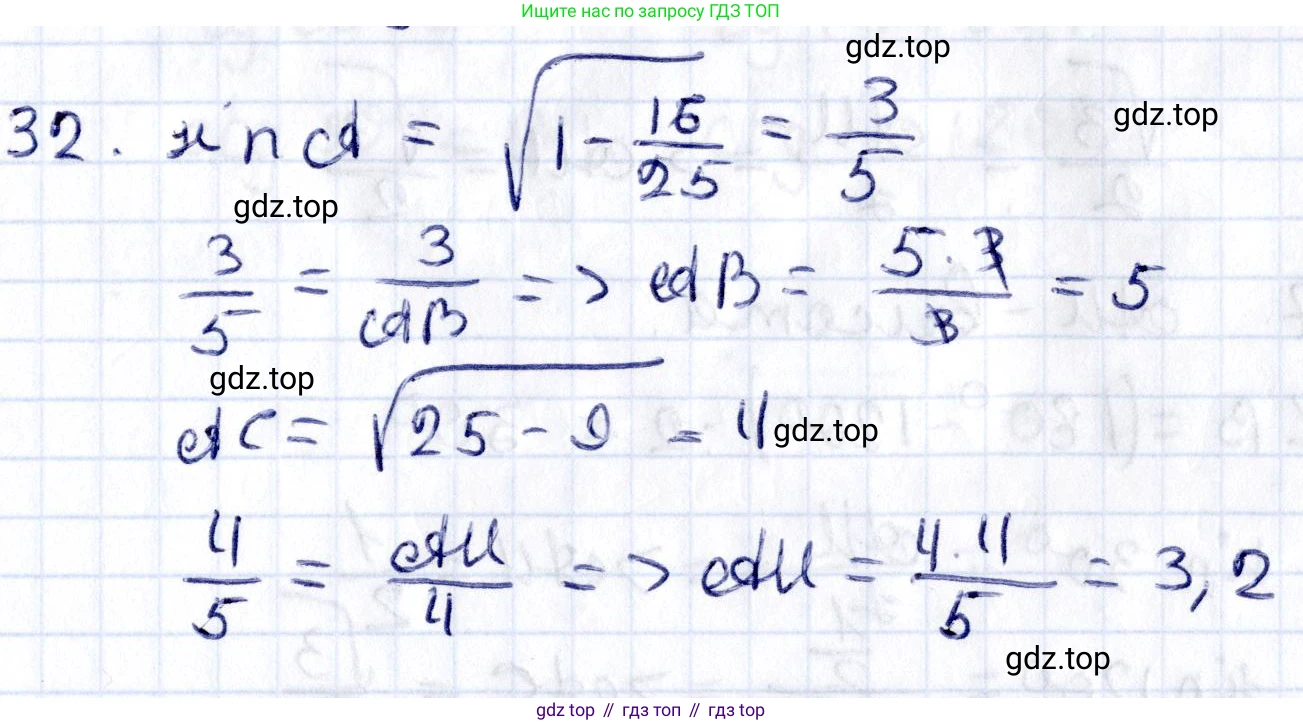 Ищите нас по запросу ГДЗ ТОП
gdz.top
gdz.top
32. sin A = √(1 - 16/25) = 3/5
gdz.top
3/5 = 3/AB => AB = 5·3/3 = 5
gdz.top
AC = √(25 - 9) = 4
gdz.top
4/5 = AH/4 => AH = 4·4/5 = 3,2
gdz.top
gdz top // гдз топ // gdz top